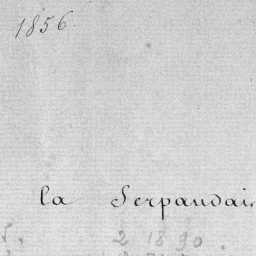 1856
la Serpaudais
2 18 90